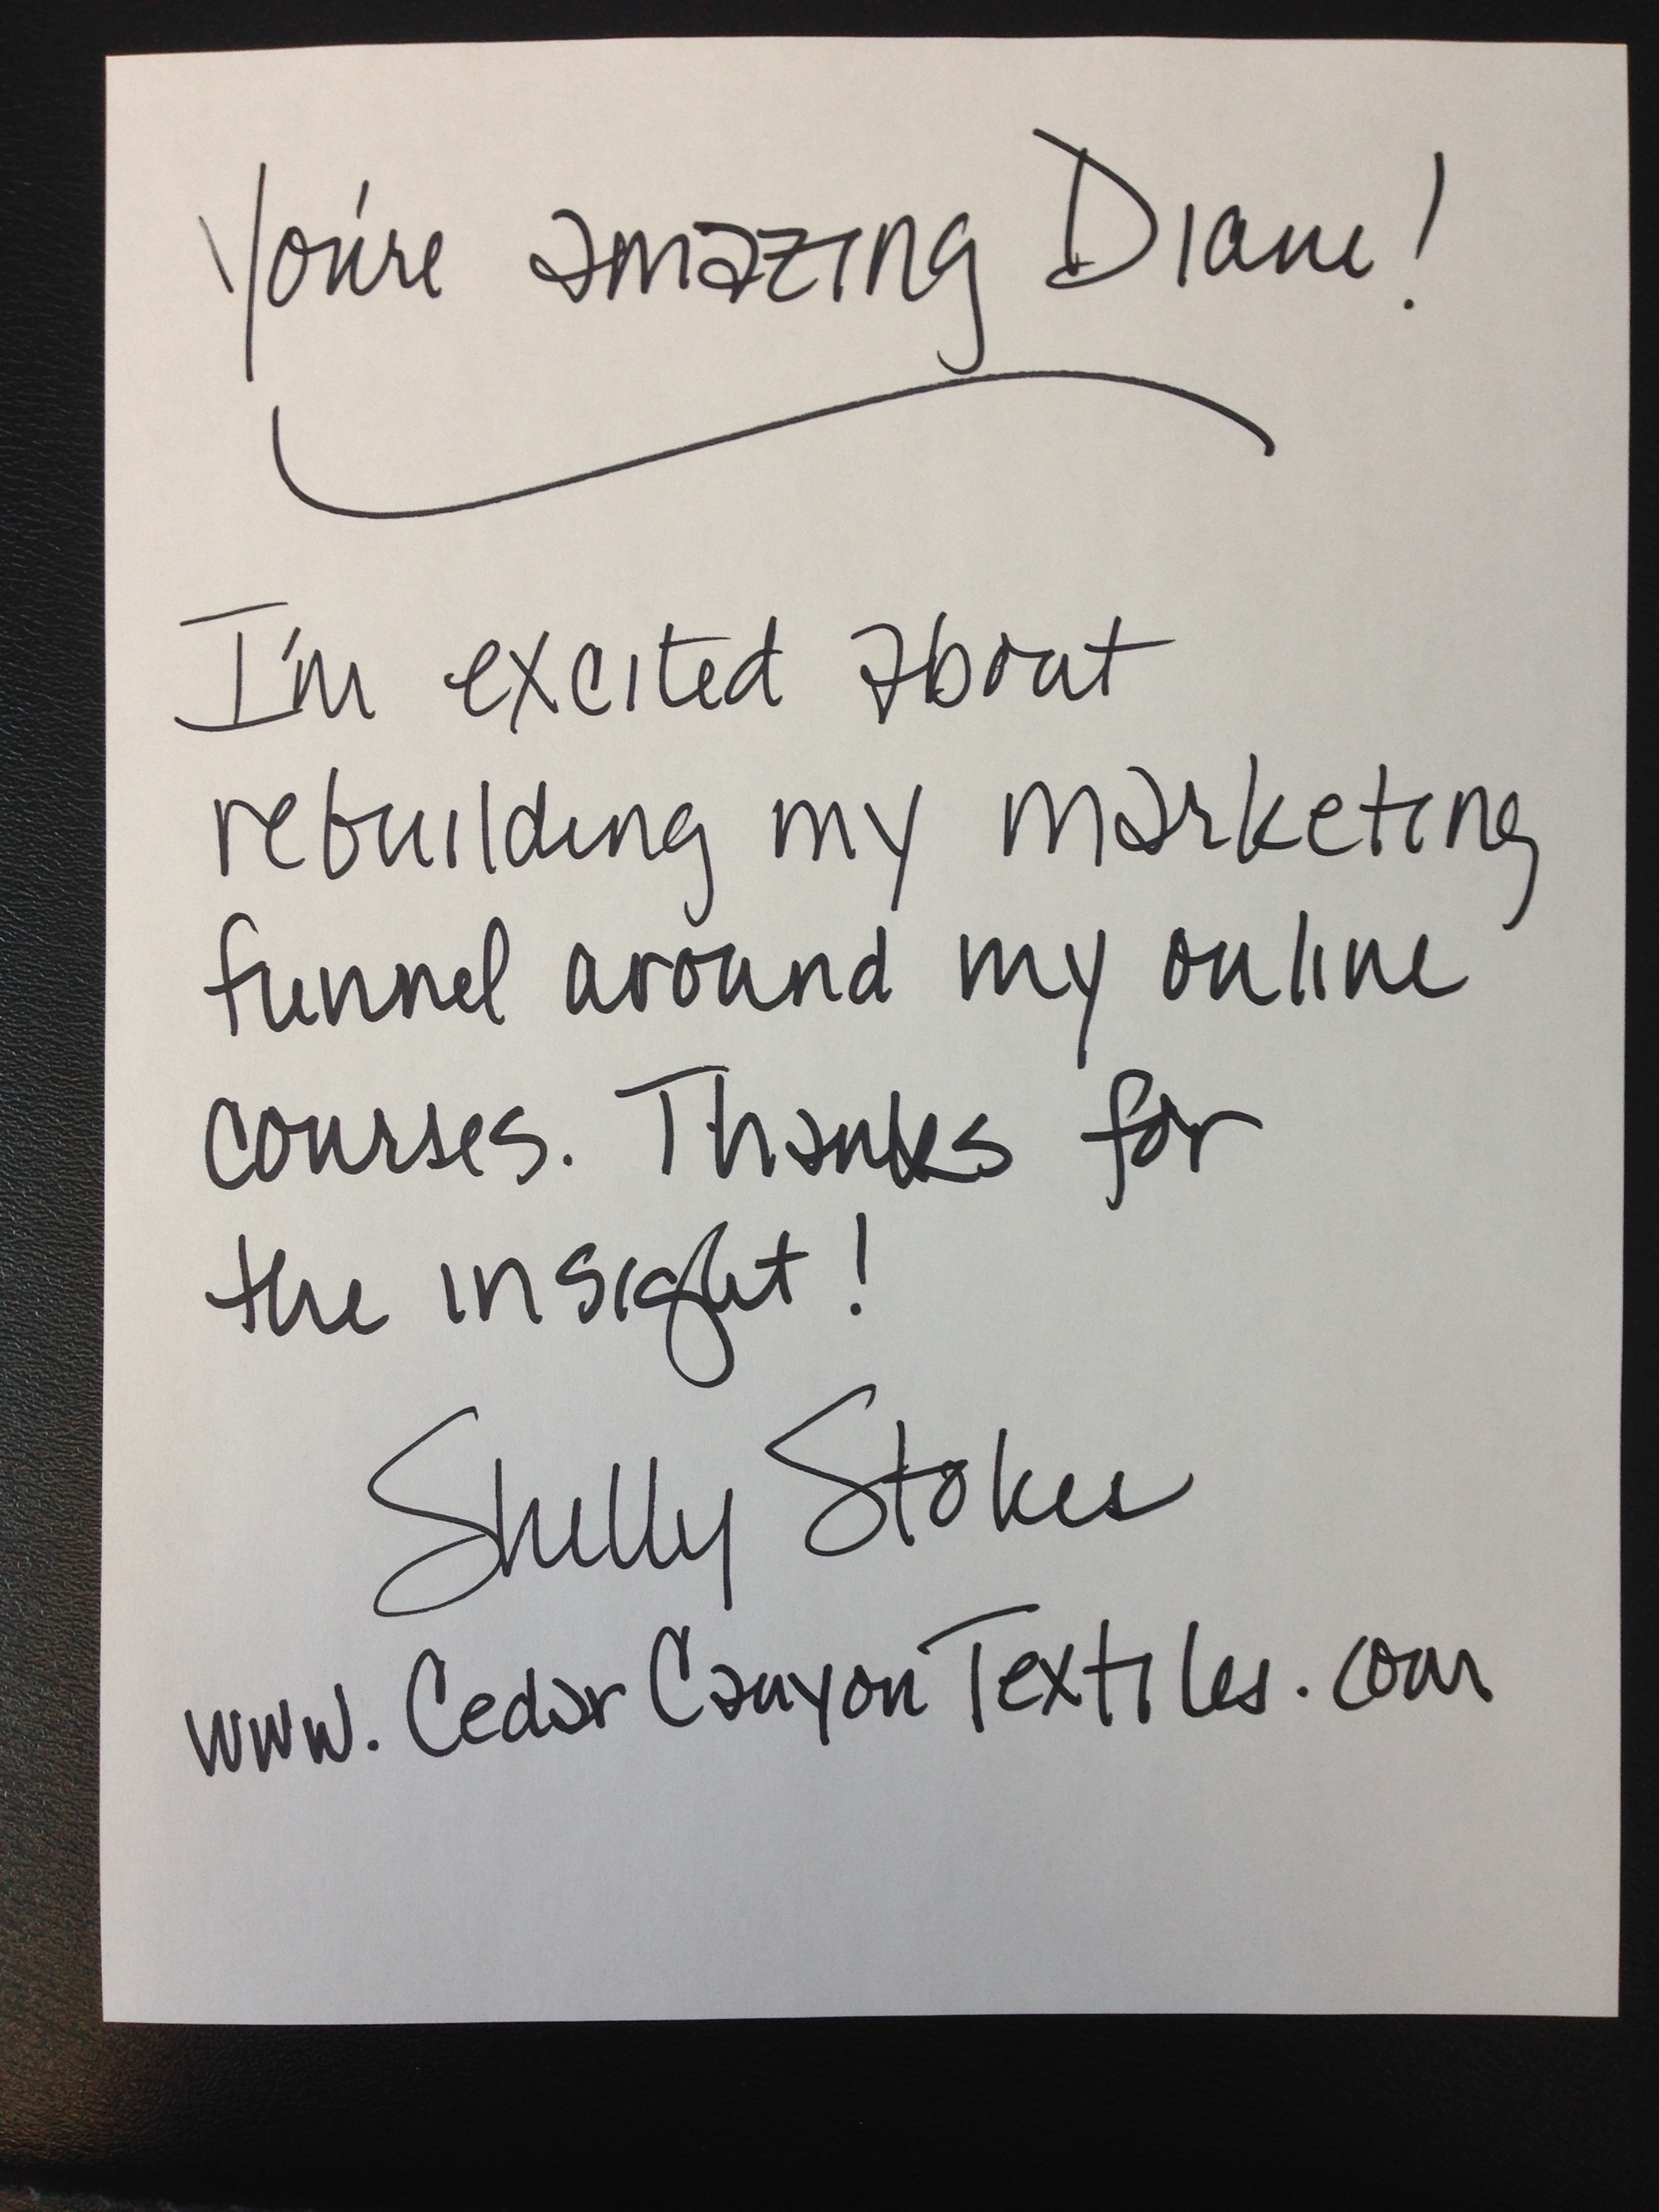 You're amazing Diane!
I'm excited about
rebuilding my marketing
funnel around my online
courses. Thanks for
the insight!
Shelly Stokes
www.CedarCanyonTextiles.com